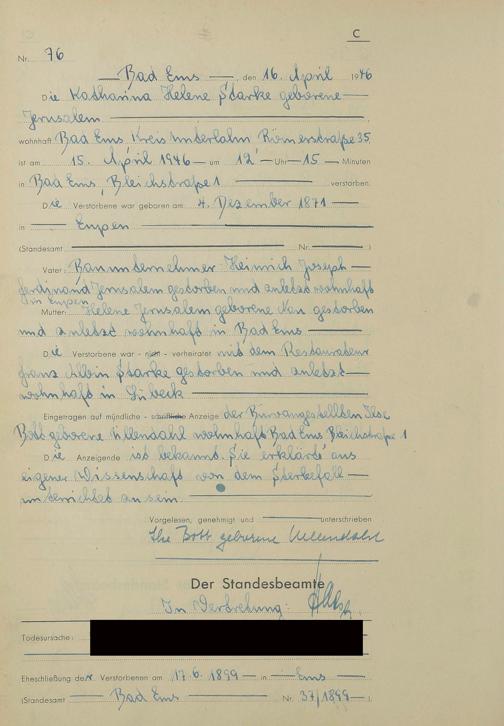 C
Nr. 76
Bad Ems, den 16. April 1946
Die Katharina Helene Starke geborene
Jerusalem
wohnhaft Bad Ems Kreis Unterlahn Römerstraße 35
ist am 15. April 1946 um 12 Uhr 15 Minuten
in Bad Ems, Bleichstraße 1 verstorben.
Die Verstorbene war geboren am 4. Dezember 1871
in Eupen
(Standesamt Nr. )
Vater: Bauunternehmer Heinrich Joseph
Ferdinand Jerusalem gestorben und zuletzt wohnhaft
in Eupen
Mutter: Helene Jerusalem geborene gestorben
und zuletzt wohnhaft in Bad Ems
Die Verstorbene war - nicht - verheiratet mit dem Restaurateur
Franz Albin Starke gestorben und zuletzt
wohnhaft in Lübeck
Eingetragen auf mündliche - schriftliche Anzeige der Büroangestellten Ilse
Bott geborene Üllendahl wohnhaft Bad Ems Bleichstraße 1
Die Anzeigende ist bekannt. Sie erklärte aus
eigener Wissenschaft von dem Sterbefall
unterrichtet zu sein
Vorgelesen, genehmigt und unterschrieben
Ilse Bott geborene Üllendahl
Der Standesbeamte
In Vertretung:
Todesursache:
Eheschließung der Verstorbenen am 17.6.1899 in Ems
(Standesamt Bad Ems Nr. 37/1899 ).